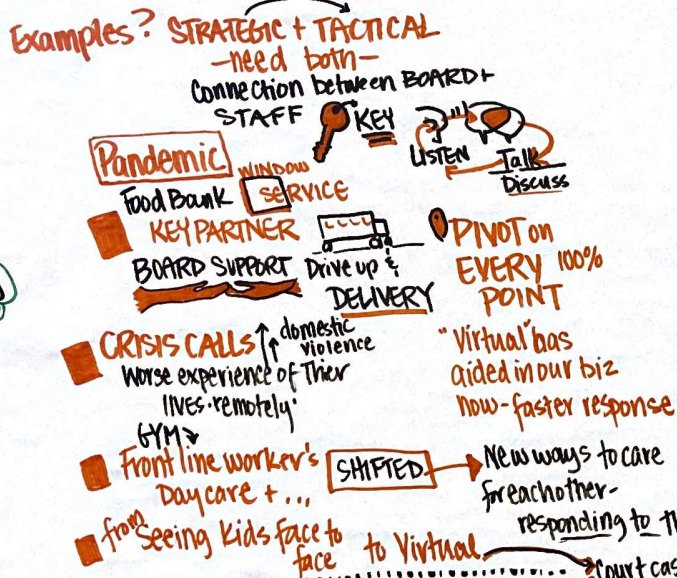 Examples? STRATEGIC + TACTICAL
-need both-
Connection between BOARD +
STAFF KEY
LISTEN Talk
Discuss
Pandemic
Food Bank WINDOW
SERVICE
KEY PARTNER
BOARD SUPPORT Drive up &
DELIVERY
PIVOT on
EVERY 100%
POINT
CRISIS CALLS domestic
violence
worse experience of Thier
lIVES. remotely.
"Virtual" has
aided in our biz
now-faster response
GYM
Front line worker's
Daycare + ...
SHIFTED
New ways to care
for each other-
responding to
from Seeing Kids face to
face to Virtual
Court